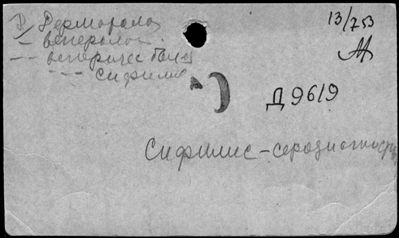 Дерматолог
— венеролог
— венеричес бол
— сифилис
13/253
Д 9619
Сифилис – серодиагности